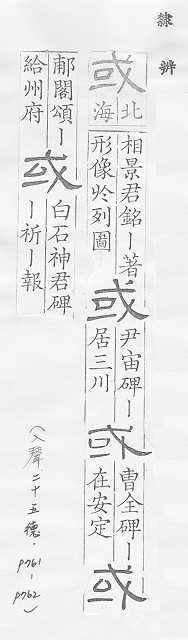 隸辨
或
北海
相景君銘ー著
形像於列圖
或
尹宙碑ー
居三川
或
曹全碑ー
在安定
或
郙閣頌ー
給州府
或
白石神君碑
ー祈ー報
(入聲.二十五德.P761-P762)